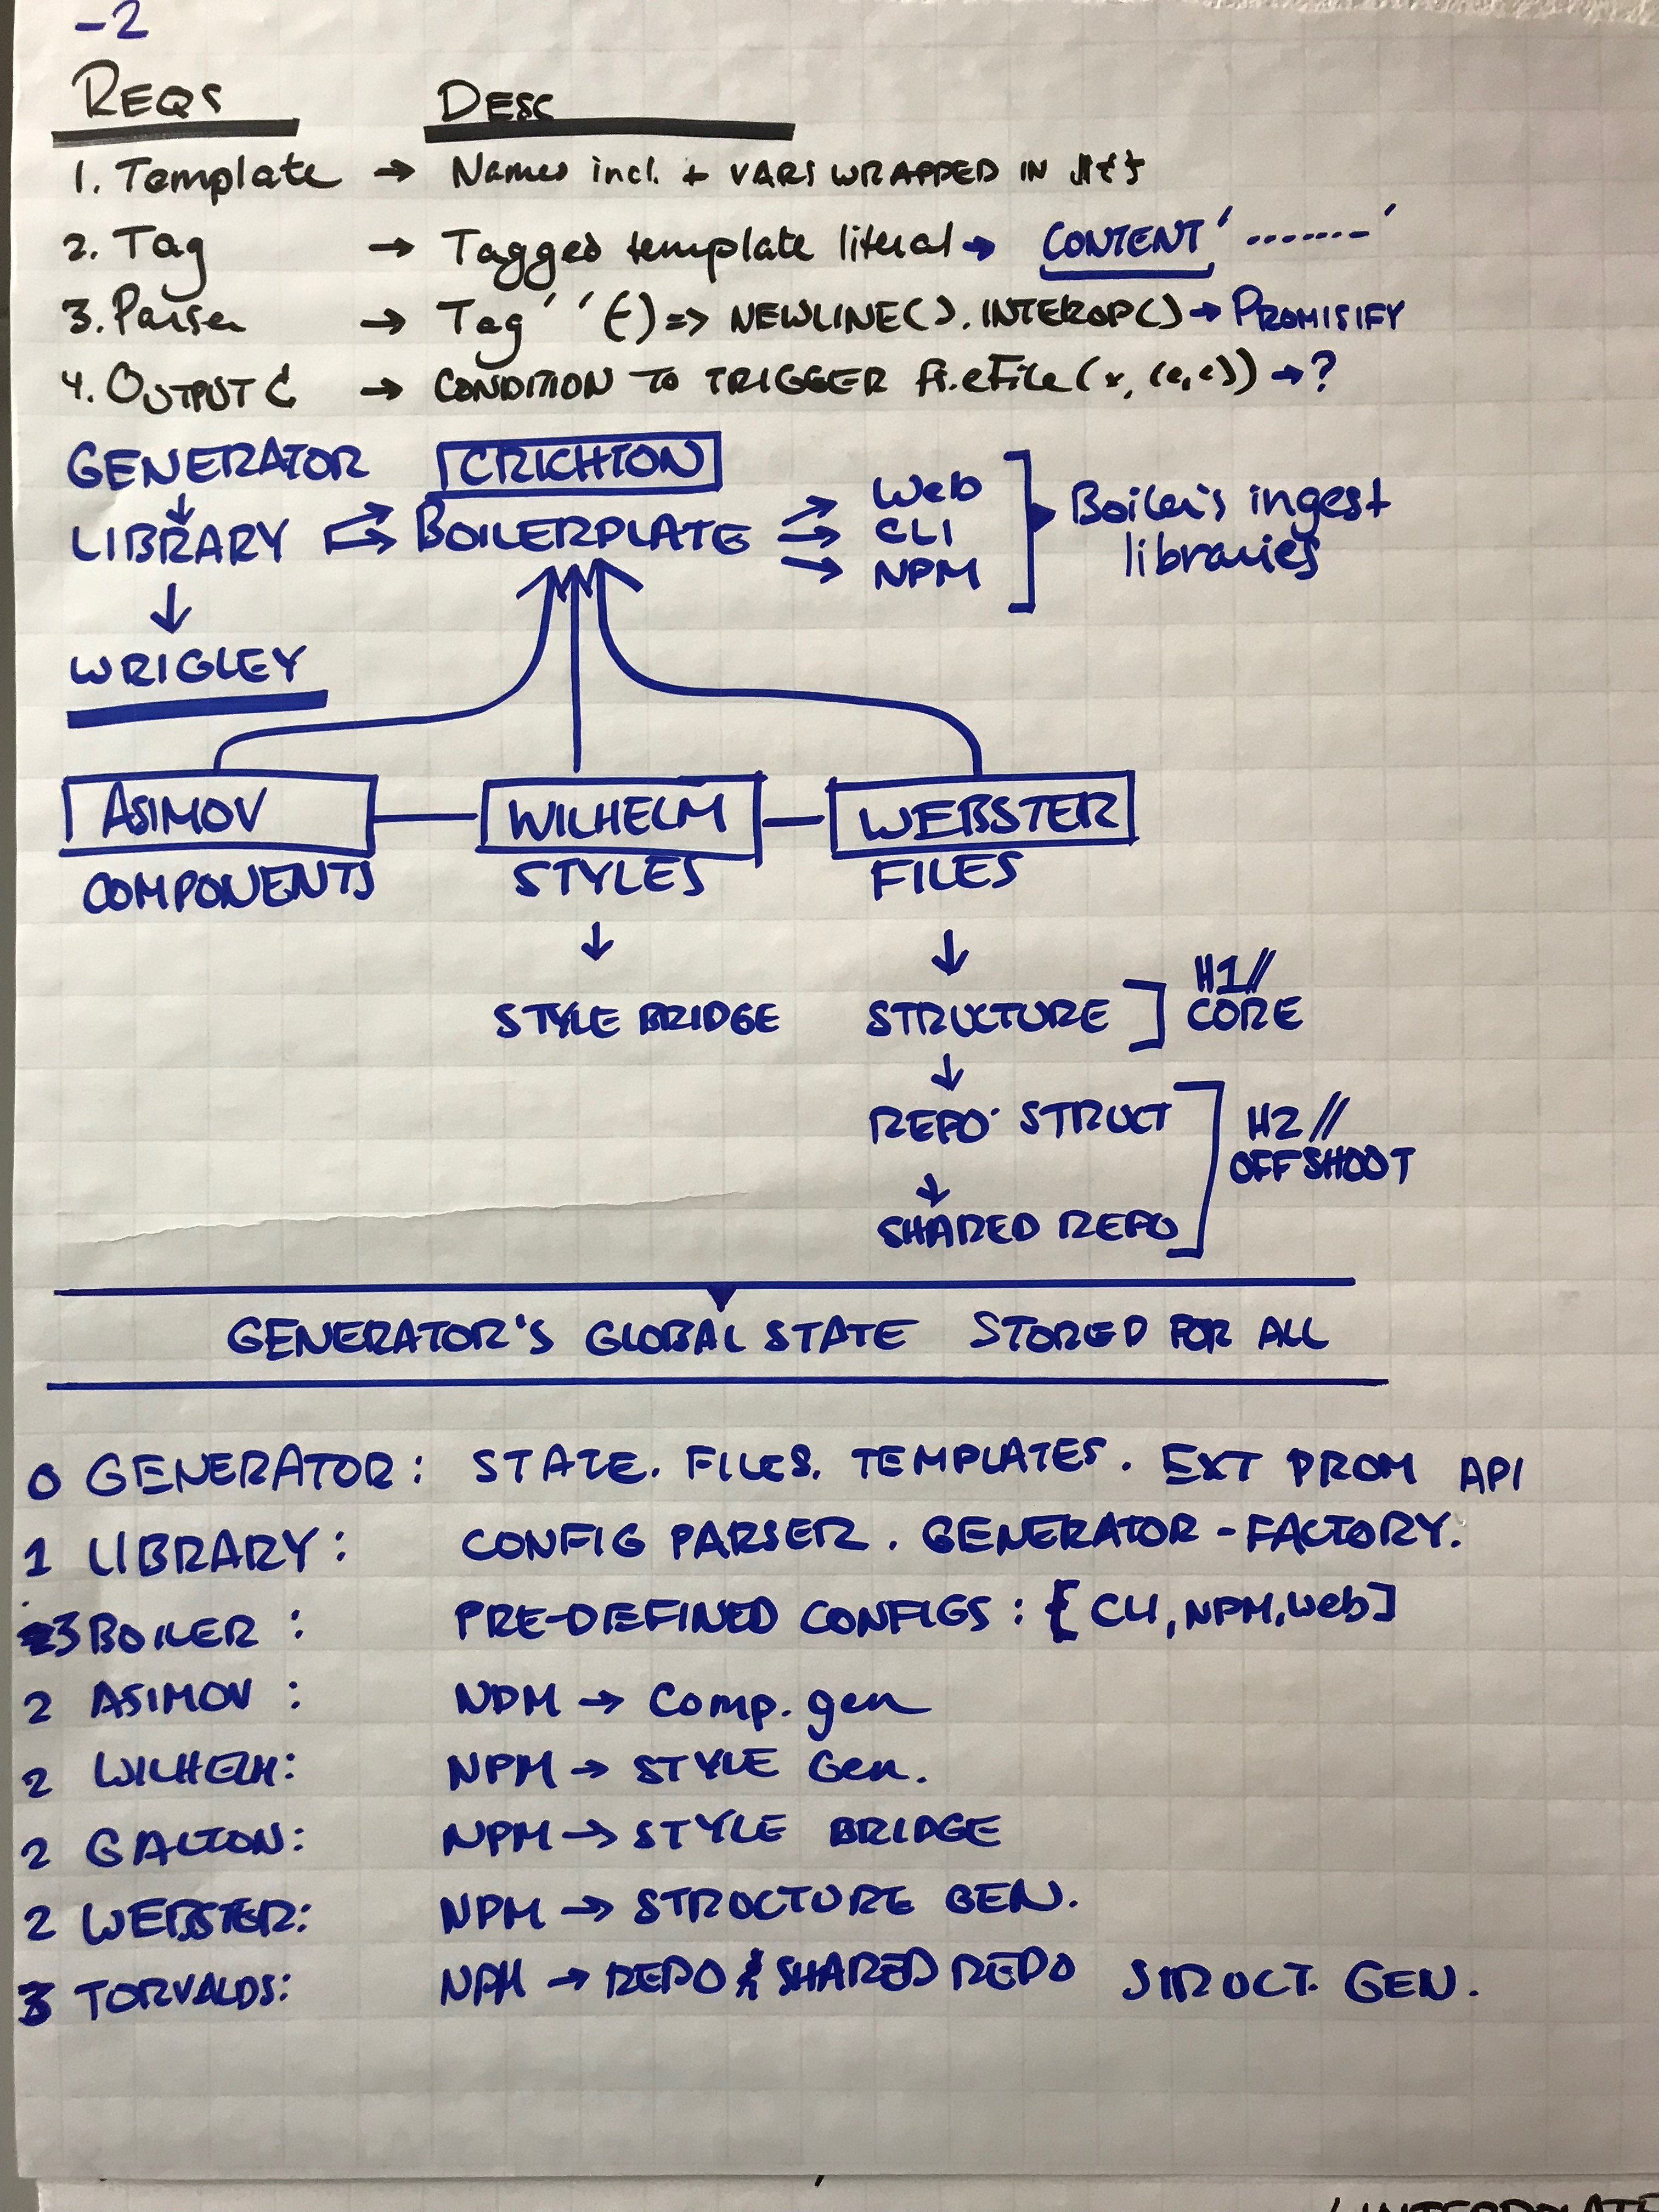 -2
REQS DESC
1. Template → Names incl. + VARS WRAPPED IN
2. Tag → Tagged template literal → CONTENT ' ....... '
3. Parser → Tag ' ' (-) => NEWLINE().INTEROP() → PROMISIFY
4. OUTPUT → CONDITION TO TRIGGER → ?
GENERATOR CRICHTON
↓
LIBRARY → BOILERPLATE → Web
→ CLI
→ NPM
Boiler's ingest
libraries
↓
WRIGLEY
ASIMOV — WILHELM — WEBSTER
COMPONENTS STYLES FILES
↓ ↓
STYLE BRIDGE STRUCTURE ] H1//
CORE
↓
REPO STRUCT H2//
OFFSHOOT
↓
SHARED REPO
GENERATOR'S GLOBAL STATE STORED FOR ALL
0 GENERATOR: STATE. FILES. TEMPLATES. EXT PROM API
1 LIBRARY: CONFIG PARSER. GENERATOR-FACTORY.
3 BOILER: PRE-DEFINED CONFIGS: [CLI, NPM, Web]
2 ASIMOV: NPM → Comp. gen
2 WILHELM: NPM → STYLE Gen.
2 GALTON: NPM → STYLE BRIDGE
2 WEBSTER: NPM → STRUCTURE GEN.
3 TORVALDS: NPM → REPO & SHARED REPO STRUCT. GEN.